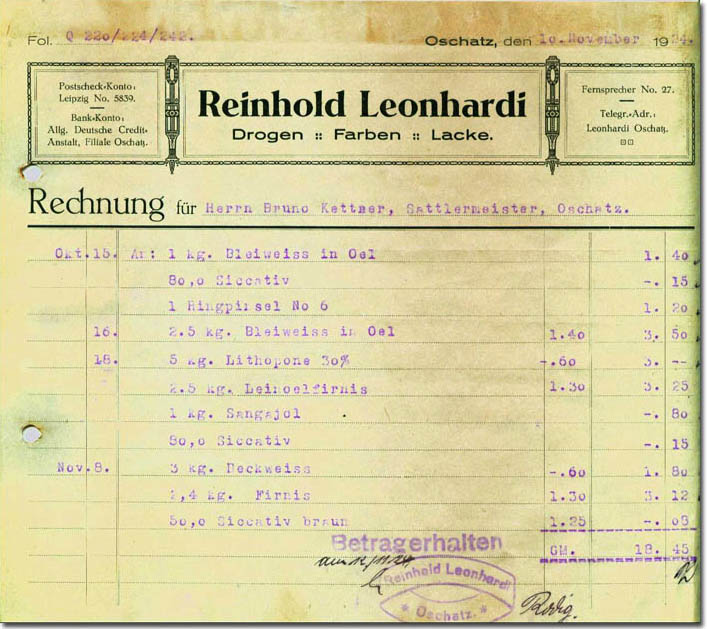 Fol. Q 220/224/242. Oschatz, den 10. November 1924.
Postscheck-Konto:
Leipzig No. 5839.
Bank-Konto:
Allg. Deutsche Credit-
Anstalt, Filiale Oschatz.
Reinhold Leonhardi
Drogen :: Farben :: Lacke.
Fernsprecher No. 27.
Telegr.-Adr.:
Leonhardi Oschatz.
Rechnung für Herrn Bruno Kettner, Sattlermeister, Oschatz.
Okt. 15. An: 1 kg. Bleiweiss in Oel 1. 40
80,0 Siccativ -. 15
1 Ringpinsel No 6 1. 20
16. 2.5 kg. Bleiweiss in Oel 1.40 3. 50
18. 5 kg. Lithopone 30% -.60 3. --
2.5 kg. Leinoelfirnis 1.30 3. 25
1 kg. Sangajol -. 80
80,0 Siccativ -. 15
Nov. 8. 3 kg. Deckweiss -.60 1. 80
2,4 kg. Firnis 1.30 3. 12
50,0 Siccativ braun 1.25 -. 08
GM. 18. 45
Betrag erhalten
am 12/11 24
Reinhold Leonhardi
* Oschatz. *